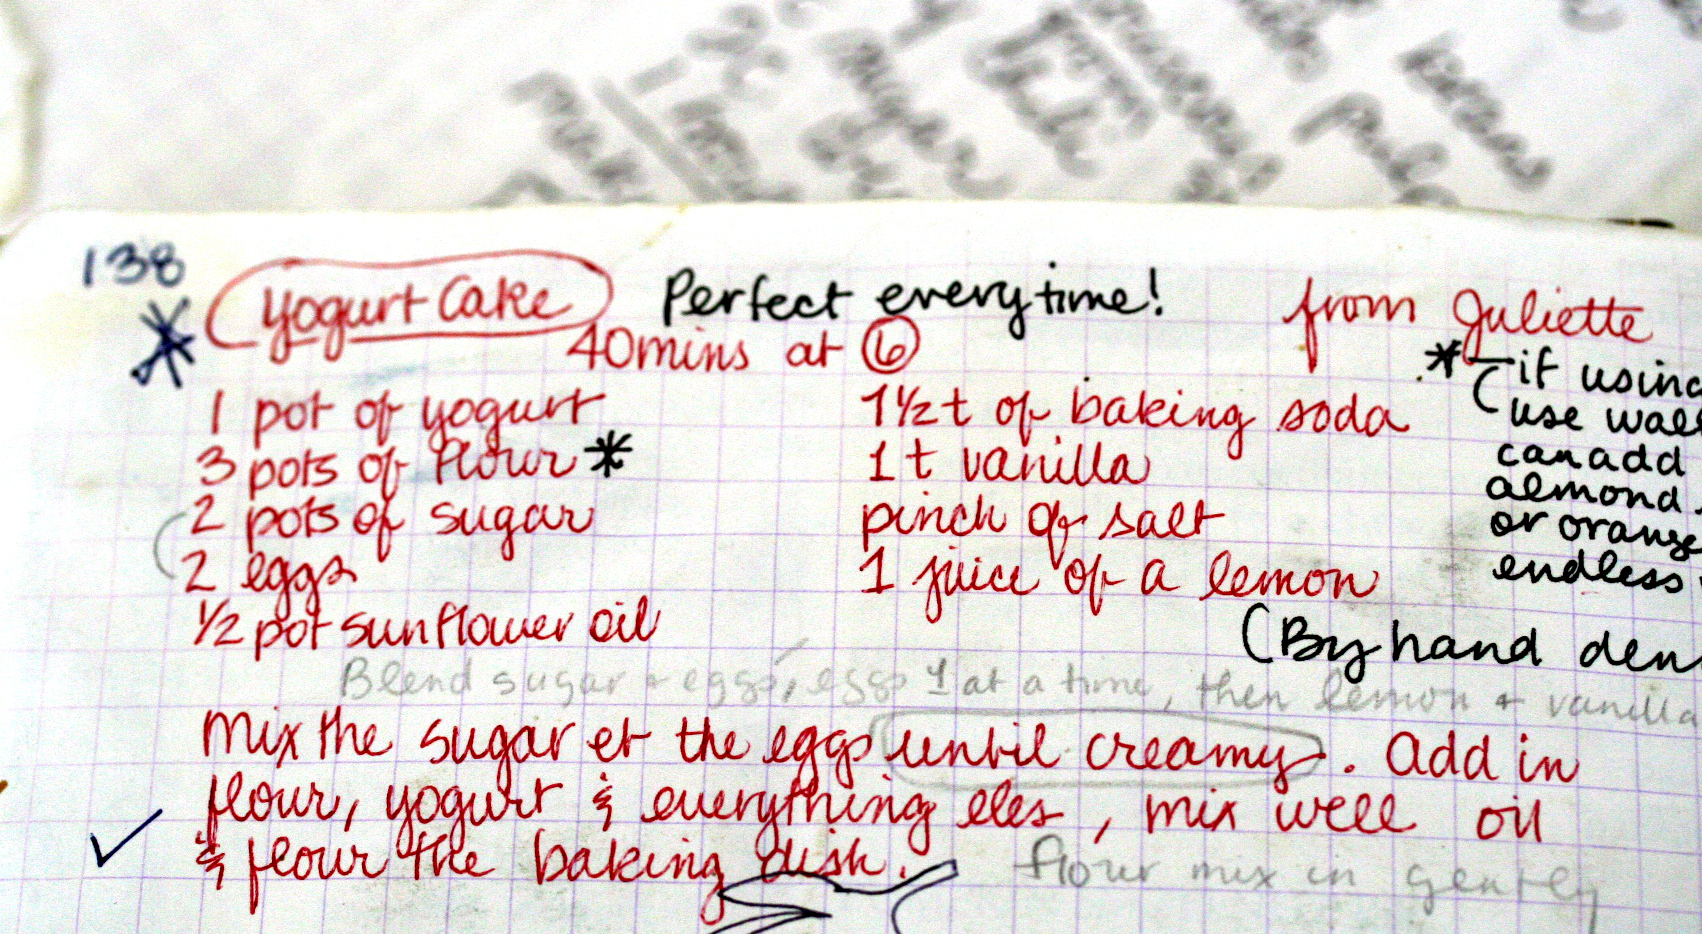 138
Yogurt Cake Perfect everytime! from Juliette
40mins at 6
* if using
use
can add
almond
or orange
endless
1 pot of yogurt
3 pots of flour *
2 pots of sugar
2 eggs
½ pot sunflower oil
1½ t of baking soda
1 t vanilla
pinch of salt
1 juice of a lemon
(By hand
Blend sugar + eggs, eggs 1 at a time, then lemon + vanilla
Mix the sugar et the eggs until creamy. Add in
flour, yogurt & everything eles, mix well oil
& flour the baking dish.
flour mix in gently